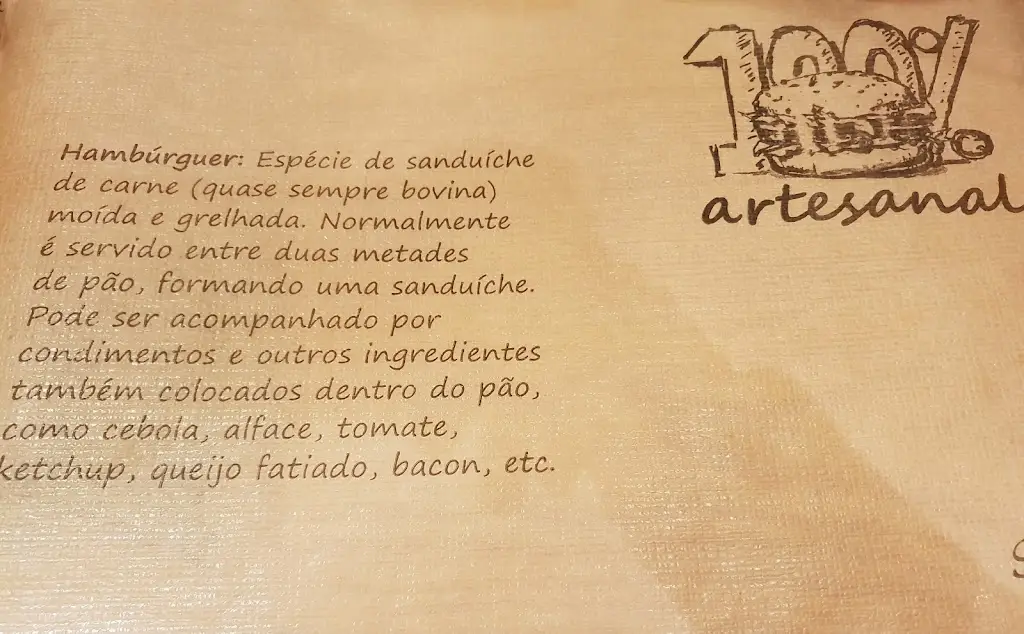 100%
artesanal
Hambúrguer: Espécie de sanduíche
de carne (quase sempre bovina)
moída e grelhada. Normalmente
é servido entre duas metades
de pão, formando uma sanduíche.
Pode ser acompanhado por
condimentos e outros ingredientes
também colocados dentro do pão,
como cebola, alface, tomate,
ketchup, queijo fatiado, bacon, etc.